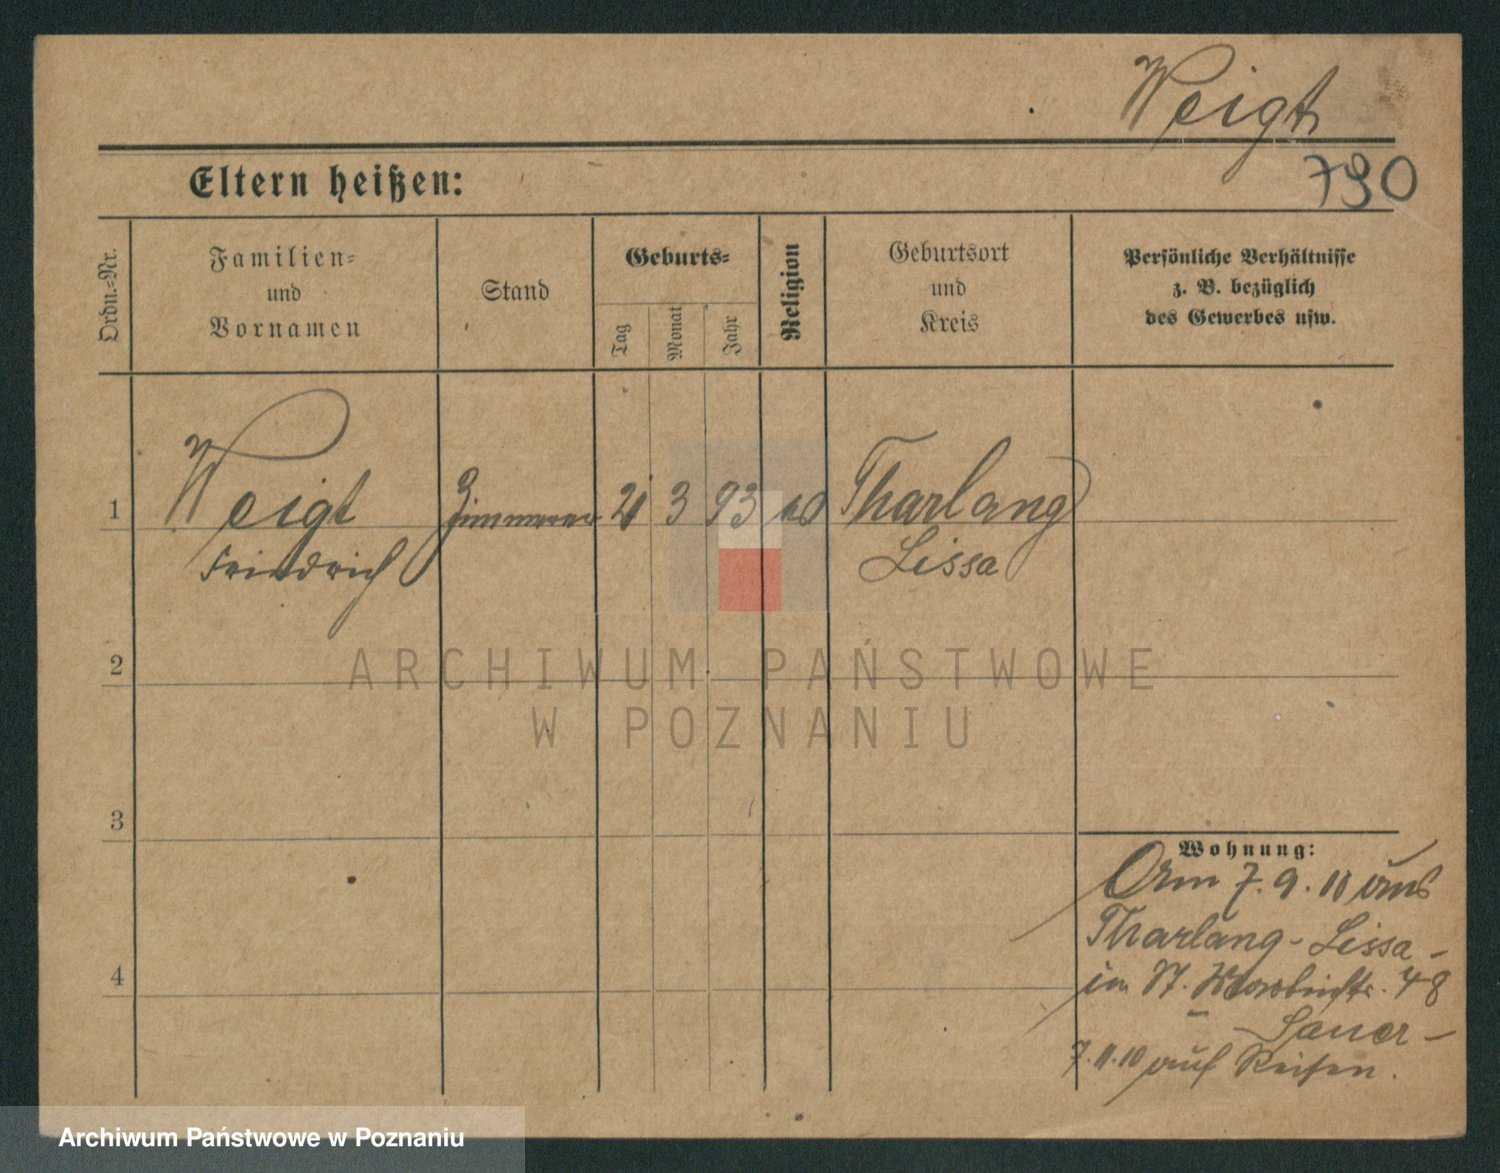 Weigt
790
Eltern heißen:
Ordn.-Nr.
Familien-
und
Vornamen
Stand
Geburts-
Tag
Monat
Jahr
Religion
Geburtsort
und
Kreis
Persönliche Verhältnisse
z. B. bezüglich
des Gewerbes usw.
1
Weigt
Friedrich
Zimmerer
21
3
93
Tharlang
Lissa
2
ARCHIWUM PAŃSTWOWE
W POZNANIU
3
4
Wohnung:
7. 9. 10 aus
Tharlang - Lissa -
in St. 48
- Sauer -
7.11.10 auf Reisen.
Archiwum Państwowe w Poznaniu